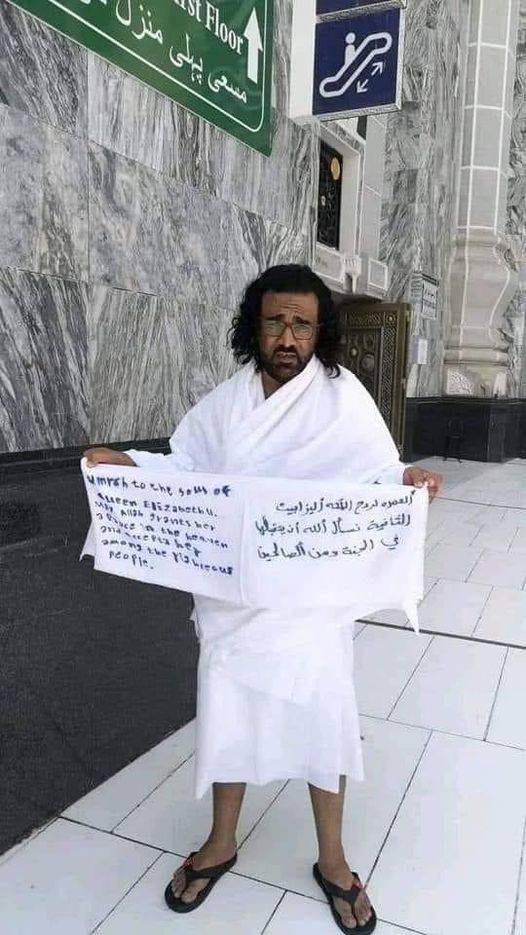 First Floor
مسعى پہلی منزل
umrah to the soul of
Queen Elizabeth II.
May Allah grants her
a place in the heaven
and accept her
among the righteous
people.
العمره لروح الملكه أليزابيت
الثانية نسأل الله أن يتقبلها
في الجنة ومن الصالحين